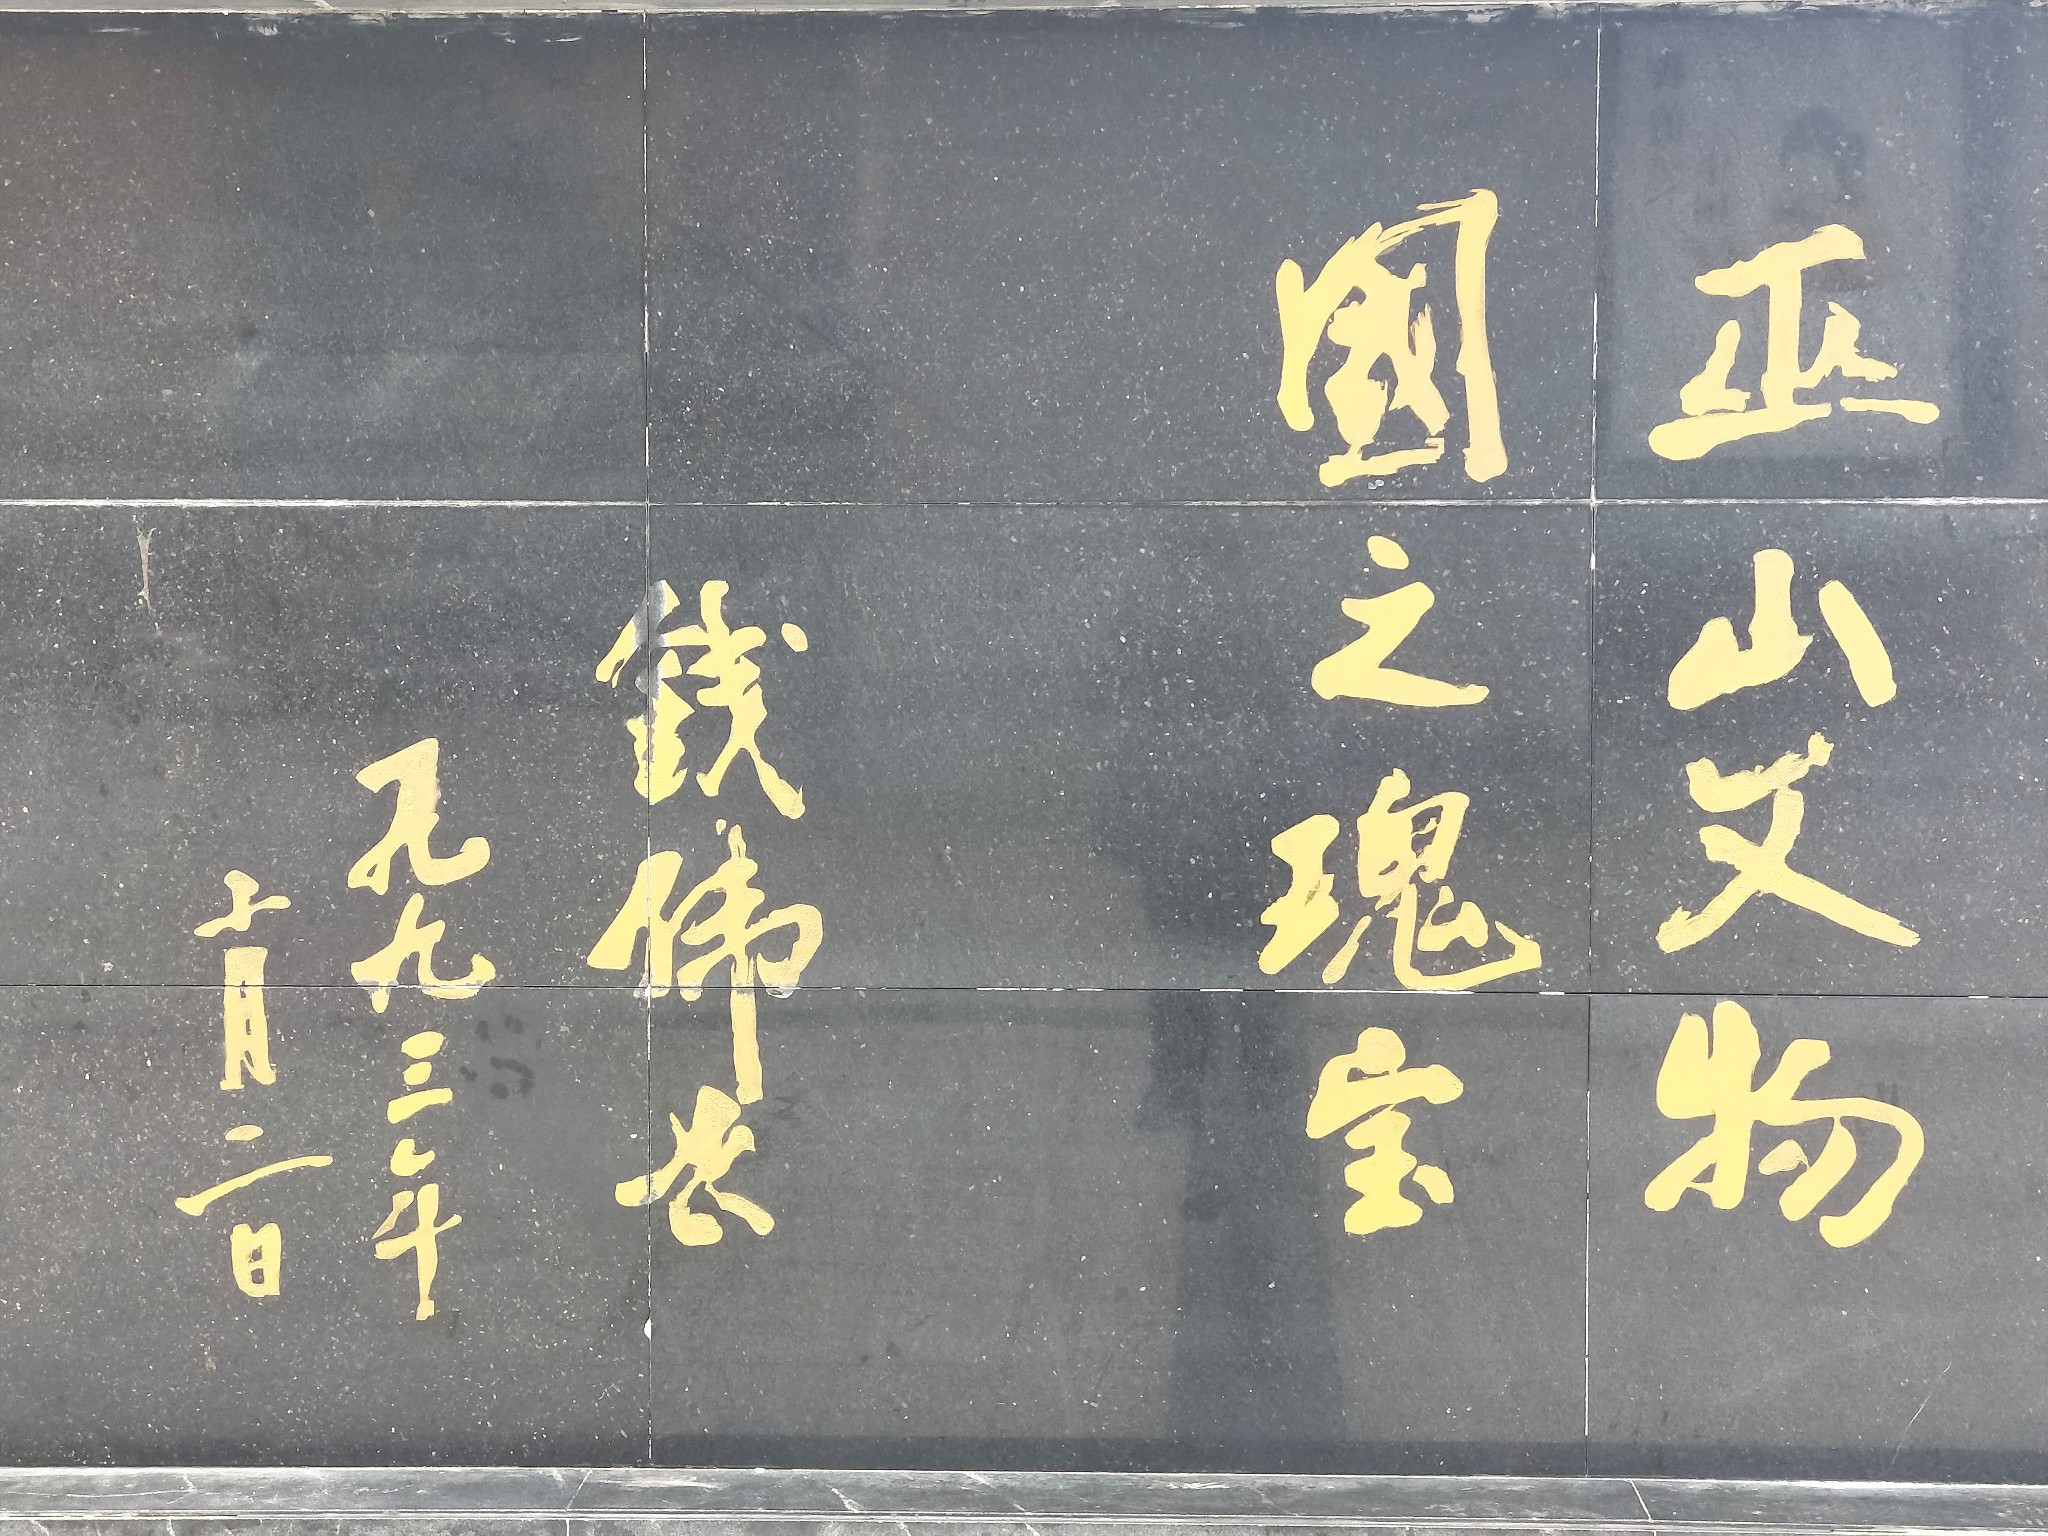 巫山文物
國之瑰宝
錢偉长
一九九三年
十月二日